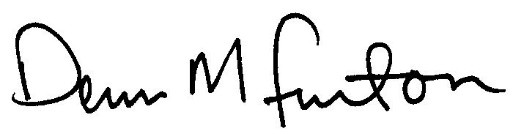 Denn M Furton